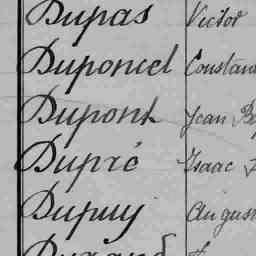 Dupas Victor
Duponcel Constan
Dupont Jean B
Dupré Isaac
Dupuy August
Durand